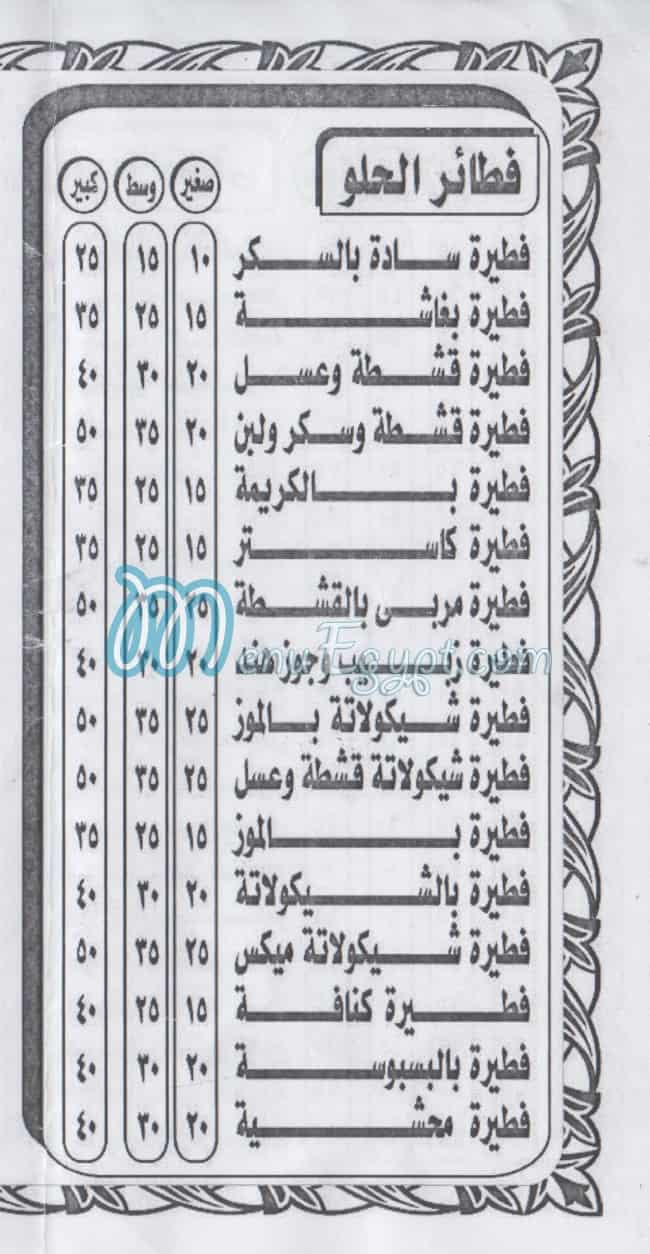 فطائر الحلو صغير وسط كبير
فطيرة سادة بالسكر ١٠ ١٥ ٢٥
فطيرة بغاشة ١٥ ٢٥ ٣٥
فطيرة قشطة وعسل ٢٠ ٣٠ ٤٠
فطيرة قشطة وسكر ولبن ٢٠ ٣٥ ٥٠
فطيرة بالكريمة ١٥ ٢٥ ٣٥
فطيرة كاستر ١٥ ٢٥ ٣٥
فطيرة مربى بالقشطة ٢٥ ٣٥ ٥٠
فطيرة زبيب وجوزهند ٢٠ ٣٠ ٤٠
MenuEgypt.com
فطيرة شيكولاتة بالموز ٢٥ ٣٥ ٥٠
فطيرة شيكولاتة قشطة وعسل ٢٥ ٣٥ ٥٠
فطيرة بالموز ١٥ ٢٥ ٣٥
فطيرة بالشيكولاتة ٢٠ ٣٠ ٤٠
فطيرة شيكولاتة ميكس ٢٥ ٣٥ ٥٠
فطيرة كنافة ١٥ ٢٥ ٤٠
فطيرة بالبسبوسة ٢٠ ٣٠ ٤٠
فطيرة محشية ٢٠ ٣٠ ٤٠